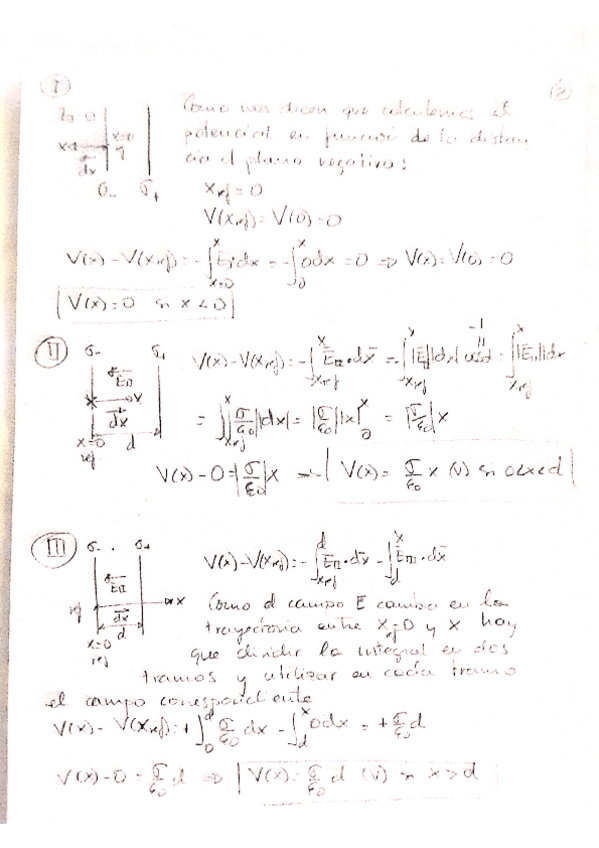 I
2
Como nos dicen que calculemos el
potencial en función de la distan
cia al plano negativo:
x=0
dx
σ₋ σ₊
x_ref = 0
V(x_ref) = V(0) = 0
V(x) - V(x_ref) = -∫_{x=0}^{x} E_I dx = -∫_0^x 0dx = 0 ⇒ V(x) = V(0) = 0
V(x) = 0 si x < 0
II
σ₋ σ₊
E_II
x
dx
x=0 d
ref
V(x) - V(x_ref) = -∫_{x_ref}^{x} E_II • dx = -∫_{x_ref}^{x} |E_II||dx| = ∫_{x_ref}^{x} |E_II|dx
-1
= ∫_{x_ref}^{x} |σ/ε₀||dx| = |σ/ε₀||x|_0^x = |σ/ε₀| x
V(x) - 0 = |σ/ε₀| x → V(x) = σ/ε₀ x (V) si 0<x<d
III
σ₋ σ₊
E_II
ref x
dx
d
x=0
ref
V(x) - V(x_ref) = -∫_{x_ref}^{d} E_II • dx - ∫_d^x E_III • dx
Como el campo E cambia en la
trayectoria entre x_ref=0 y x hay
que dividir la integral en dos
tramos y utilizar en cada tramo
el campo correspondiente
V(x) - V(x_ref) = +∫_0^d σ/ε₀ dx - ∫_d^x 0dx = +σ/ε₀ d
V(x) - 0 = σ/ε₀ d ⇒ V(x) = σ/ε₀ d (V) si x > d